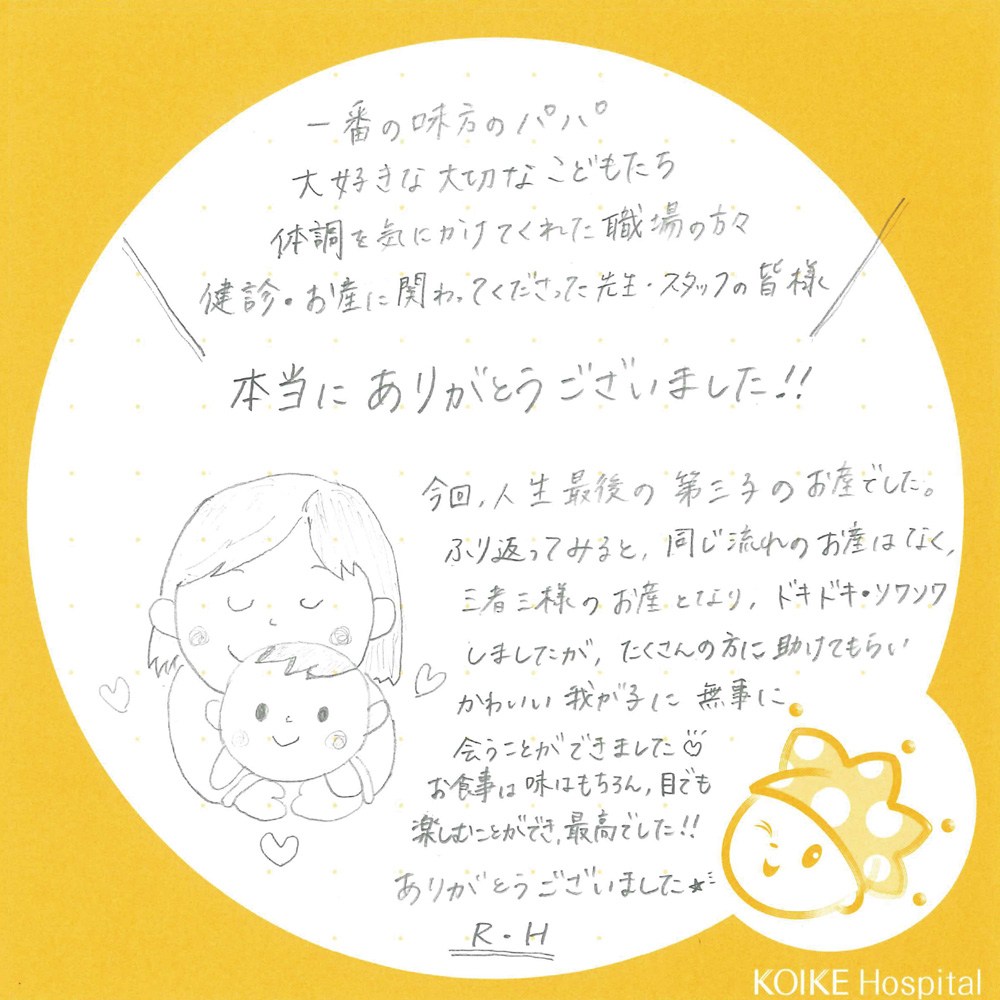 一番の味方のパパ
大好きな大切なこどもたち
体調を気にかけてくれた職場の方々
健診・お産に関わってくださった先生・スタッフの皆様
本当にありがとうございました!!
今回,人生最後の第三子のお産でした。
ふり返ってみると,同じ流れのお産はなく,
三者三様のお産となり,ドキドキ・ソワソワ
しましたが,たくさんの方に助けてもらい
かわいい我が子に無事に
会うことができました♡
お食事は味はもちろん,目でも
楽しむことができ,最高でした!!
ありがとうございました★
R・H
KOIKE Hospital